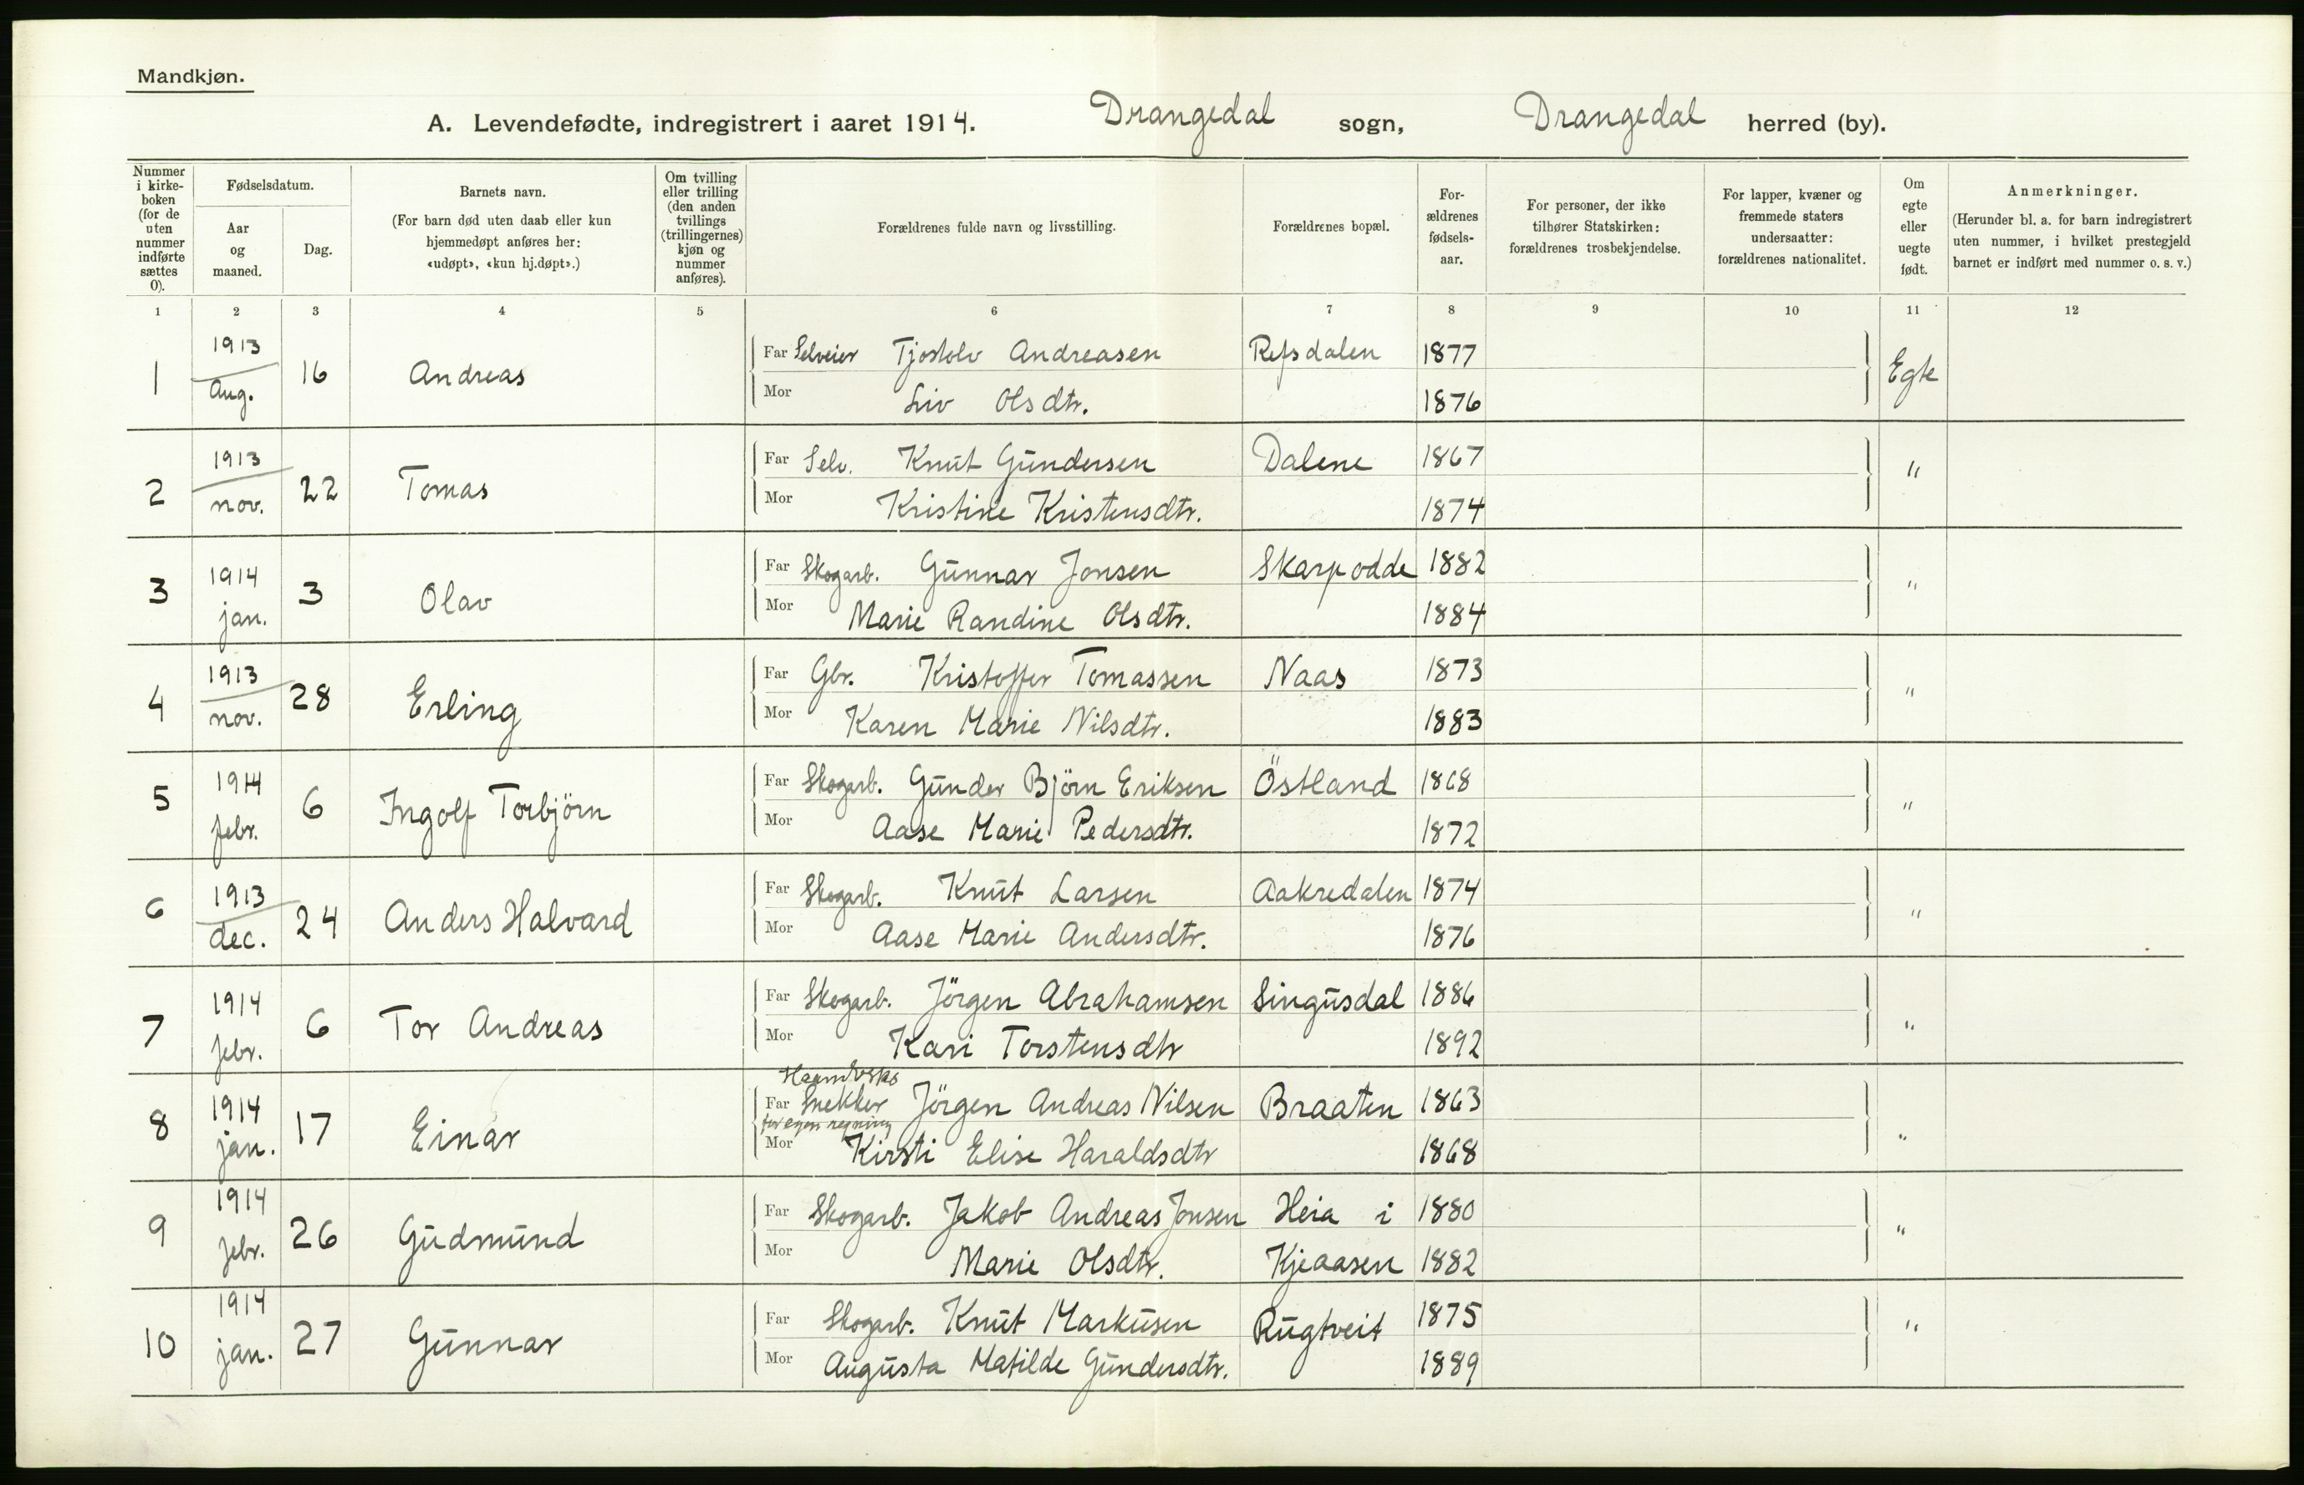 Mandkjøn.
A. Levendefødte, indregistrert i aaret 1914. Drangedal sogn, Drangedal herred (by).
Nummer i kirke-boken (for de uten nummer indførte sættes 0).
Fødselsdatum.
Aar og maaned.
Dag.
Barnets navn.
(For barn død uten daab eller kun hjemmedøpt anføres her: «udøpt», «kun hj.døpt».)
Om tvilling eller trilling (den anden tvillings (trillingernes) kjøn og nummer anføres).
Forældrenes fulde navn og livsstilling.
Forældrenes bopæl.
For-ældrenes fødsels-aar.
For personer, der ikke tilhører Statskirken: forældrenes trosbekjendelse.
For lapper, kvæner og fremmede staters undersaatter: forældrenes nationalitet.
Om egte eller uegte født.
Anmerkninger.
(Herunder bl. a. for barn indregistrert uten nummer, i hvilket prestegjeld barnet er indført med nummer o. s. v.)
1 2 3 4 5 6 7 8 9 10 11 12
1 1913 Aug. 16 Andreas Far Selveier Tjostolv Andreasen Refsdalen 1877 Egte
Mor Liv Olsdtr. 1876
2 1913 nov. 22 Tomas Far Selv. Knut Gundersen Dalene 1867 "
Mor Kristine Kristensdtr. 1874
3 1914 jan. 3 Olav Far Skogarb. Gunnar Jonsen Skarpodde 1882 "
Mor Marie Randine Olsdtr. 1884
4 1913 nov. 28 Erling Far Gbr. Kristoffer Tomassen Naas 1873 "
Mor Karen Marie Nilsdtr. 1883
5 1914 febr. 6 Ingolf Torbjörn Far Skogarb. Gunder Björn Eriksen Östland 1868 "
Mor Aase Marie Pedersdtr. 1872
6 1913 dec. 24 Anders Halvard Far Skogarb. Knut Larsen Aakredalen 1874 "
Mor Aase Marie Andersdtr. 1876
7 1914 febr. 6 Tor Andreas Far Skogarb. Jörgen Abrahamsen Singusdal 1886 "
Mor Kari Torstensdtr 1892
8 1914 jan. 17 Einar Far Snekker Jörgen Andreas Nilsen Braaten 1863 "
for egen regning
Mor Kirsti Elise Haraldsdtr 1868
9 1914 febr. 26 Gudmund Far Skogarb. Jakob Andreas Jonsen Heia i 1880 "
Mor Marie Olsdtr. Kjeaasen 1882
10 1914 jan. 27 Gunnar Far Skogarb. Knut Markusen Rugtveit 1875 "
Mor Augusta Matilde Gundersdtr. 1889